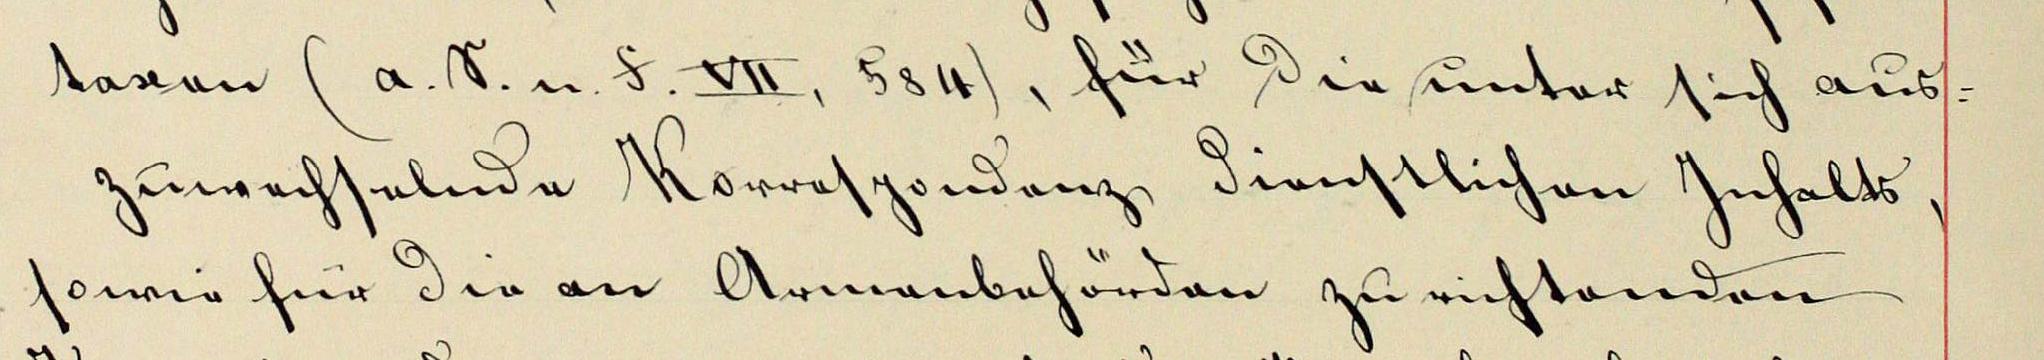 taxen (a. S. n. F. VII, 584), für die unter sich aus=
zuwechselnde Korrespondenz dienstlichen Inhalts,
sowie für die an Armenbehörden zu richtenden